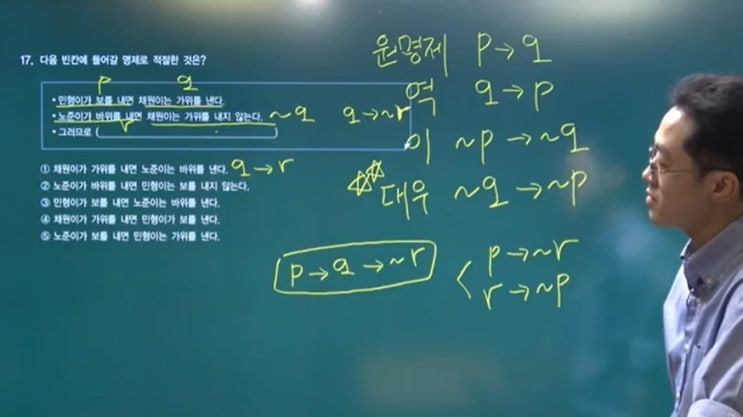 17. 다음 빈칸에 들어갈 명제로 적절한 것은?
p q
• 민형이가 보를 내면 채원이는 가위를 낸다.
• 노준이가 바위를 내면 채원이는 가위를 내지 않는다. ~q q→~r
r
• 그러므로 ( )
① 채원이가 가위를 내면 노준이는 바위를 낸다. q→r
② 노준이가 바위를 내면 민형이는 보를 내지 않는다.
③ 민형이가 보를 내면 노준이는 바위를 낸다.
④ 채원이가 가위를 내면 민형이가 보를 낸다.
⑤ 노준이가 보를 내면 민형이는 가위를 낸다.
원명제 p→q
역 q→p
이 ~p→~q
대우 ~q→~p
p→q→~r
p→~r
r→~p